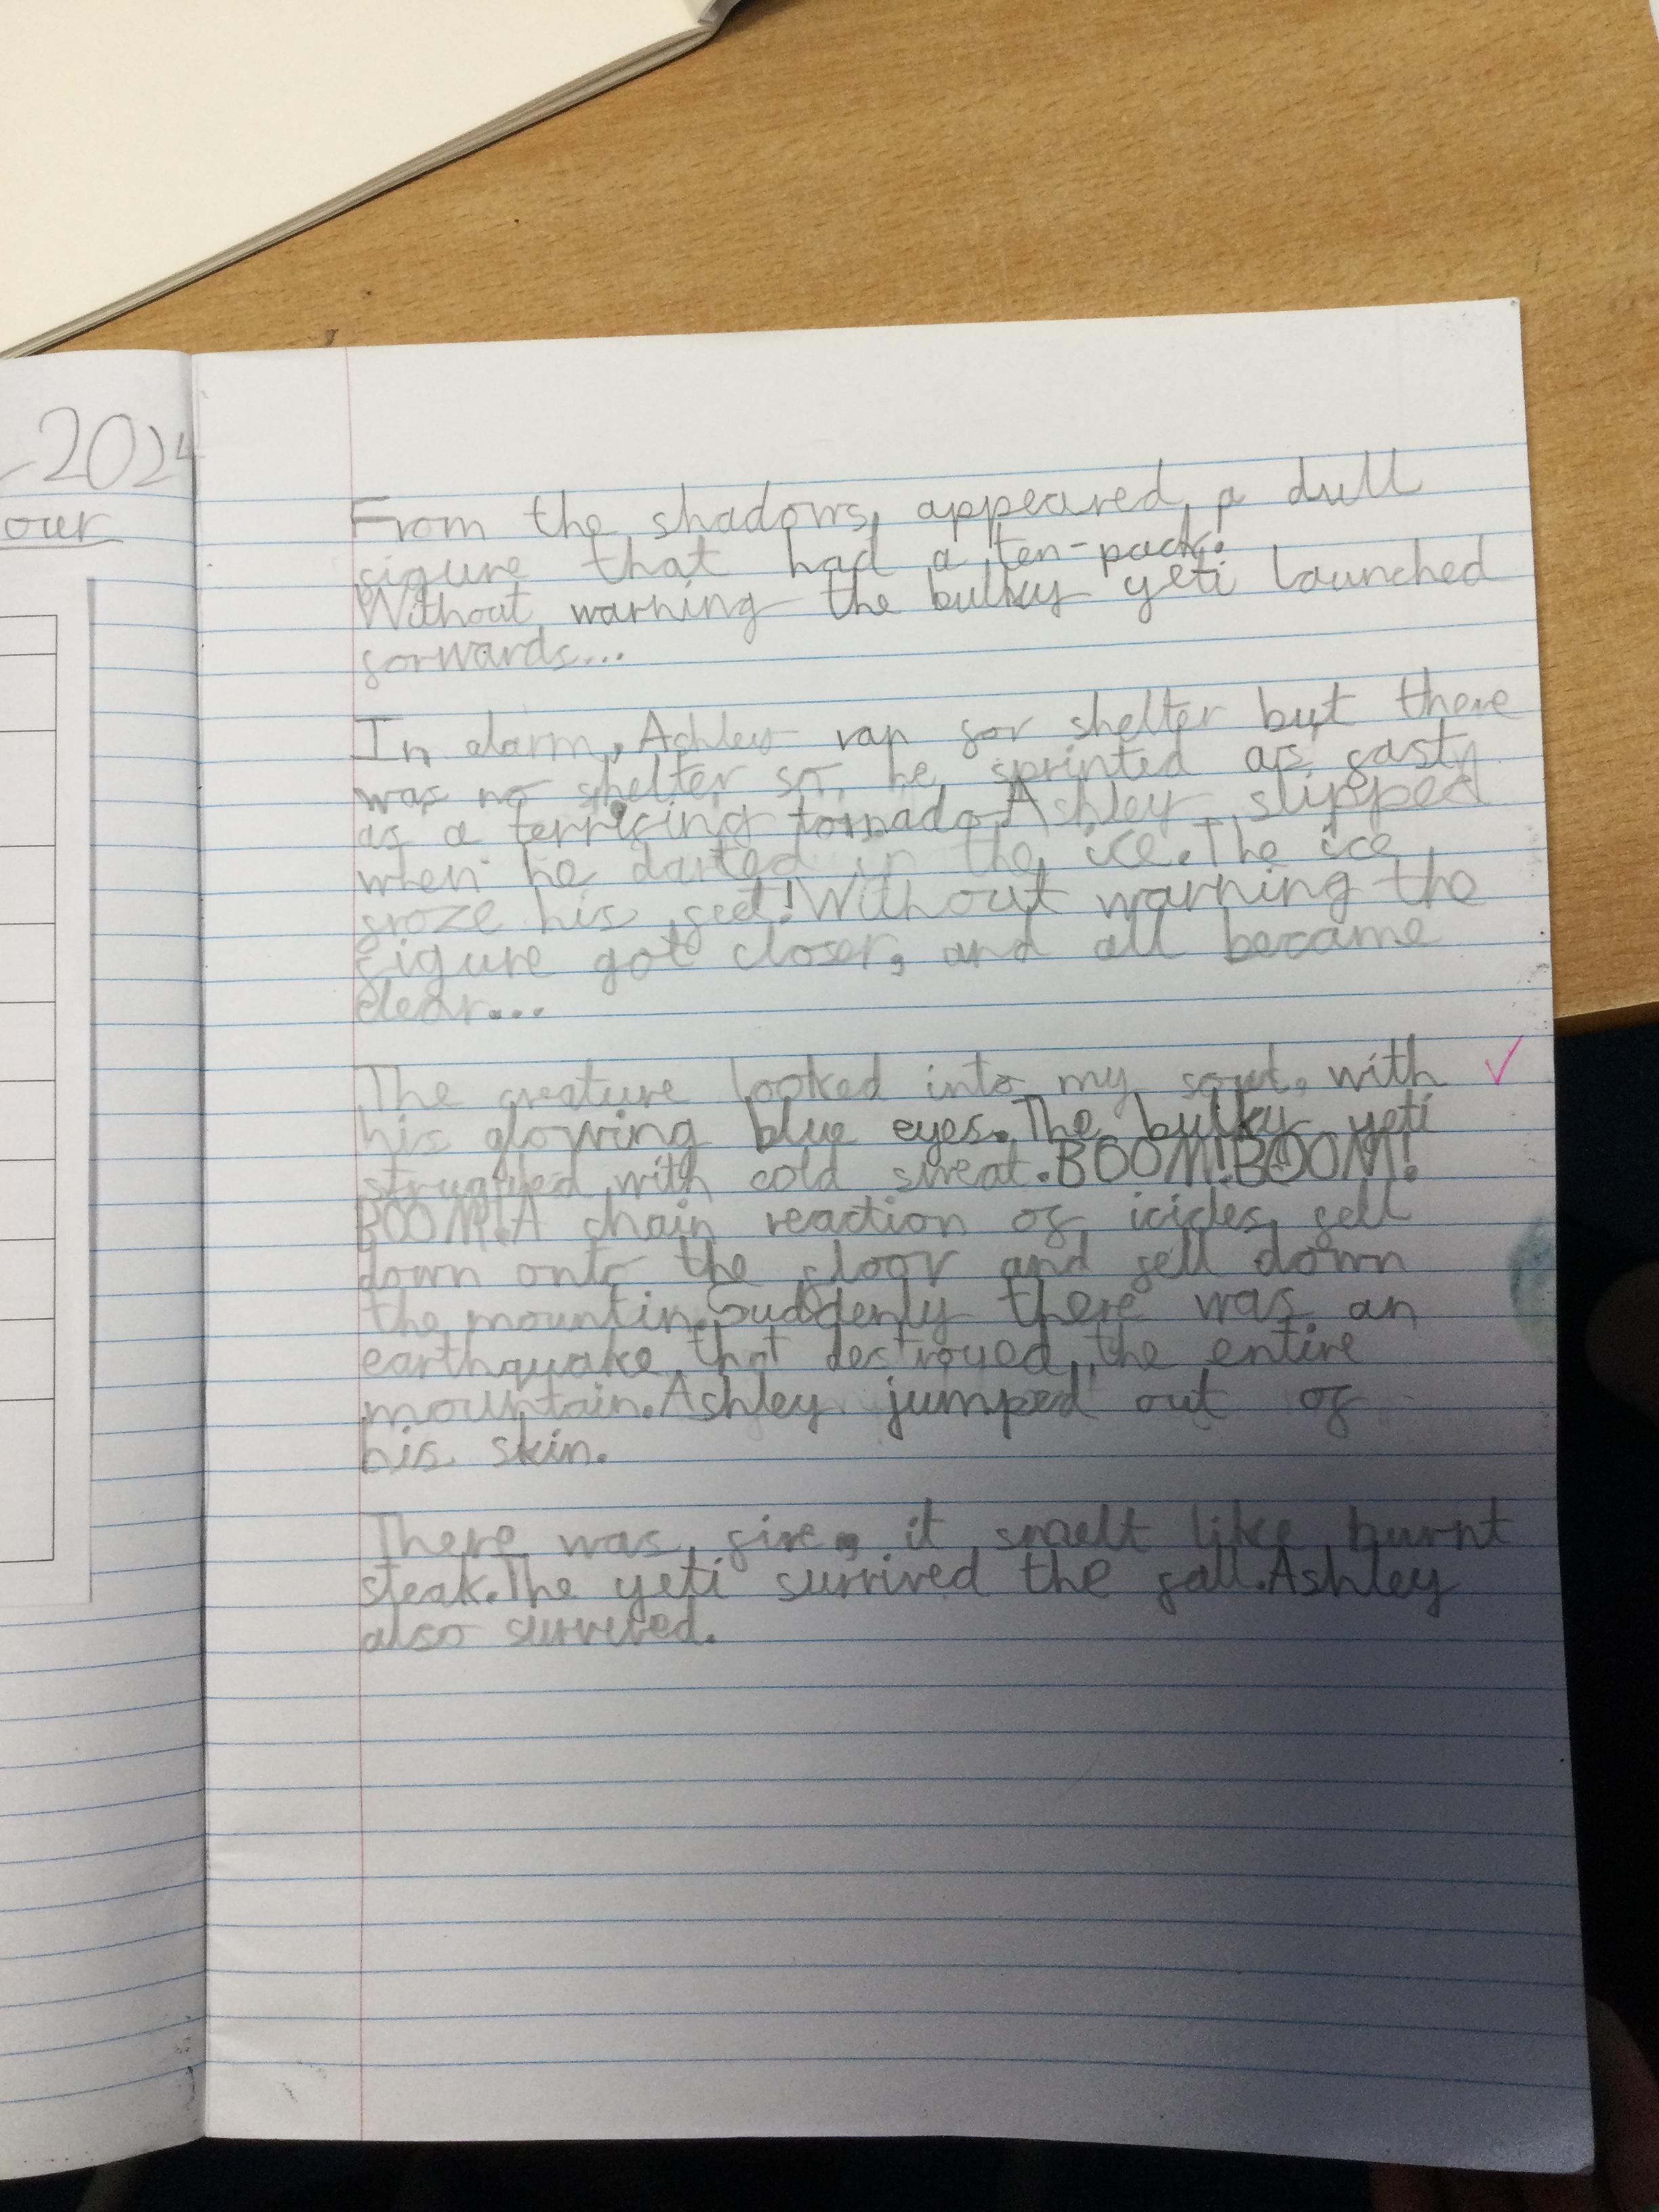 2024
our
From the shadows, appeared, a dull
figure that had a ten-pack.
Without warning the bulky yeti launched
forwards...
In alarm, Ashley ran for shelter but there
was no shelter so, he sprinted as fasty
as a terrifing tornado. Ashley slipped
when he darted in the ice. The ice
froze his feet! Without warning the
figure got closer, and all became
clear...
The creature looked into my soul, with
his glowing blue eyes. The bulky yeti
struggled with cold sweat. BOOM! BOOM!
BOOM! A chain reaction of icicles fell
down onto the floor and fell down
the mountin. Suddenly there was an
earthquake that destroyed the entire
mountain. Ashley jumped out of
his skin.
There was fire, it smelt like burnt
steak. The yeti survived the fall. Ashley
also survived.